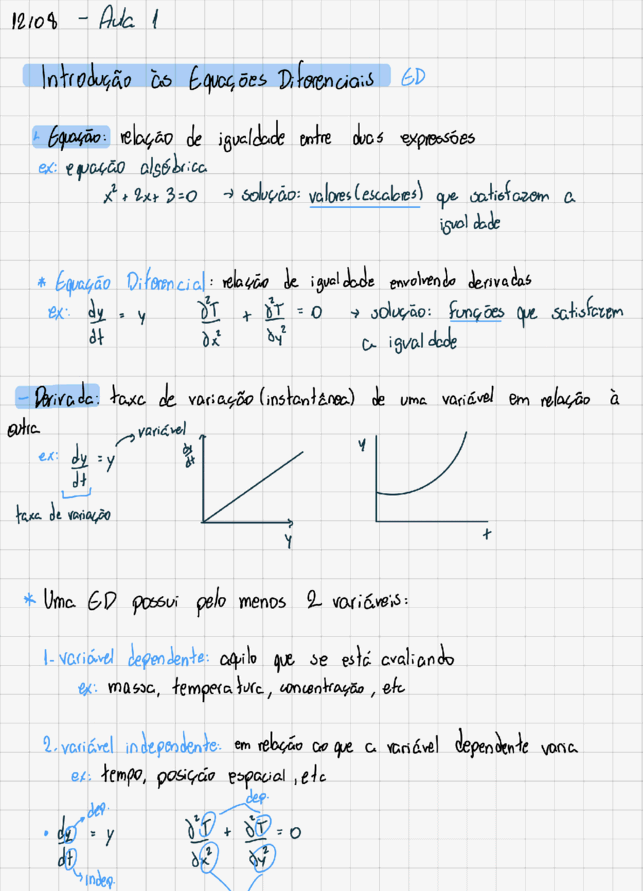 12/08 - Aula 1
Introdução às Equações Diferenciais ED
Equação: relação de igualdade entre duas expressões
ex: equação algébrica
x² + 2x + 3 = 0 → solução: valores (escalares) que satisfazem a
igualdade
* Equação Diferencial: relação de igualdade envolvendo derivadas
ex: dy/dt = y ∂²T/∂x² + ∂²T/∂y² = 0 → solução: funções que satisfazem
a igualdade
- Derivada: taxa de variação (instantânea) de uma variável em relação à
outra
→ variável
ex: dy/dt = y
taxa de variação
dy/dt
y
y
t
* Uma ED possui pelo menos 2 variáveis:
1- variável dependente: aquilo que se está avaliando
ex: massa, temperatura, concentração, etc
2. variável independente: em relação ao que a variável dependente varia
ex: tempo, posição espacial, etc
dep. dep.
• dy/dt = y ∂²T/∂x² + ∂²T/∂y² = 0
indep.